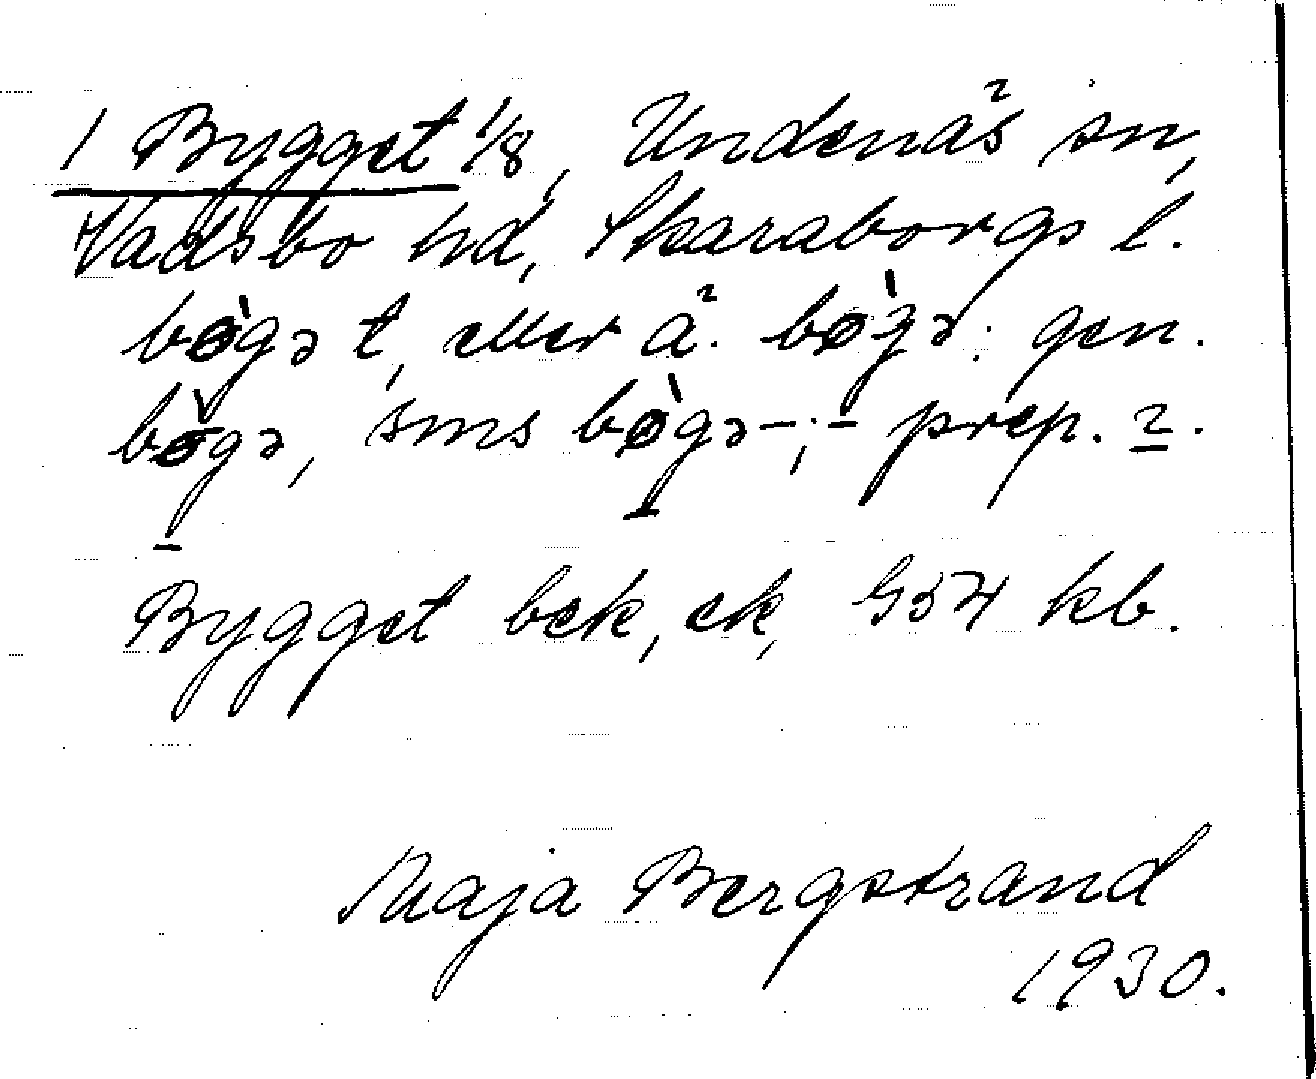 1 Bygget 1/8, Undenäs sn,
Vadsbo hd, Skaraborgs l.
bø̀gə t, eller å. bø̀gə. gen.
bø̀gə, sms bø̀gə-; - prep. 2.
Bygget bek, ek, G54 kb.
Maja Bergstrand
1930.